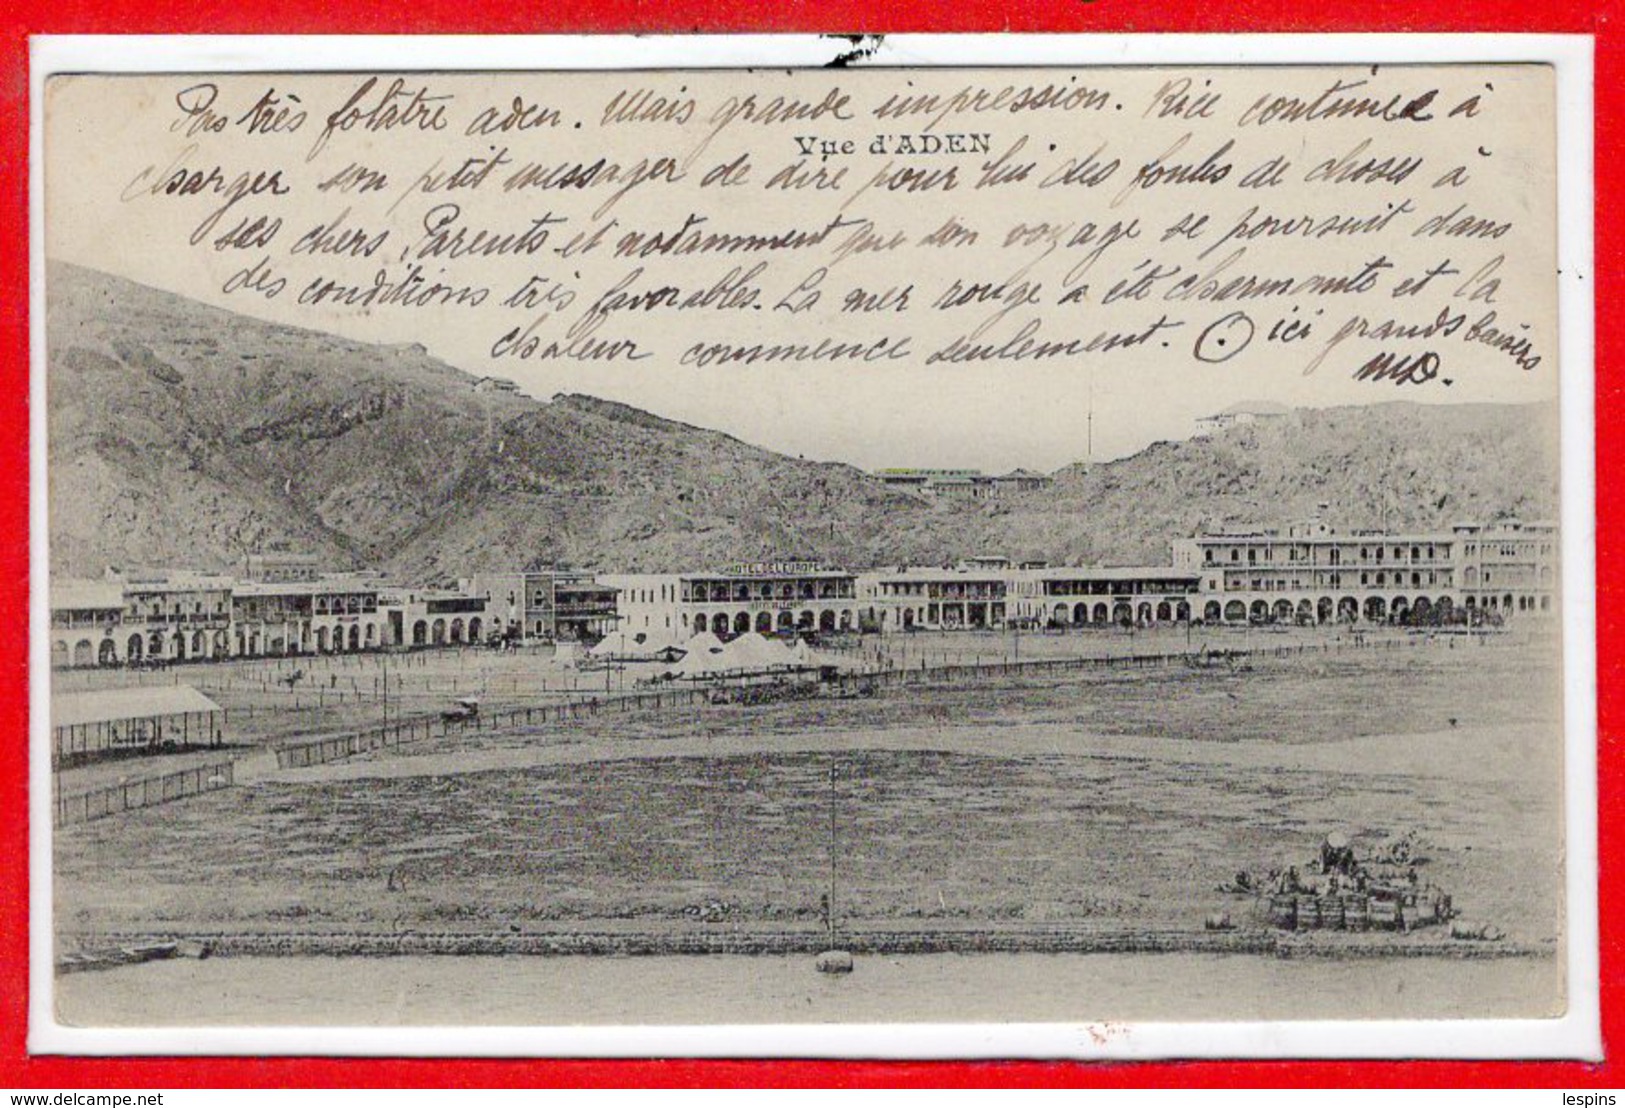 Pas très folâtre aden. Mais grande impression. Rice continue à
Vue d'ADEN
charger son petit messager de dire pour lui des foules de choses à
ses chers Parents et notamment que son voyage se poursuit dans
des conditions très favorables. La mer rouge a été charmante et la
chaleur commence seulement. ici grands baisers
MD.
HOTEL DE L'EUROPE
delcampe.net
lespins